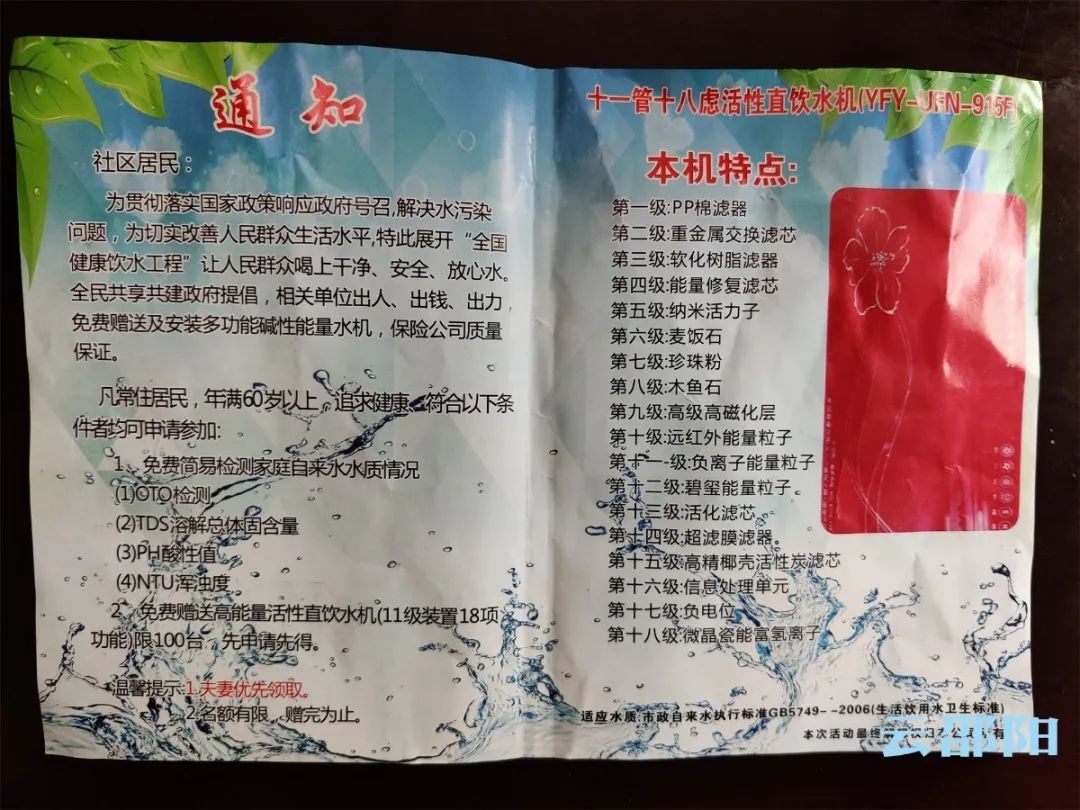 通知
社区居民：
为贯彻落实国家政策响应政府号召,解决水污染
问题，为切实改善人民群众生活水平,特此展开“全国
健康饮水工程”让人民群众喝上干净、安全、放心水。
全民共享共建政府提倡，相关单位出人、出钱、出力，
免费赠送及安装多功能碱性能量水机，保险公司质量
保证。
凡常住居民，年满60岁以上，追求健康，符合以下条
件者均可申请参加:
1、免费简易检测家庭自来水水质情况
(1)OTO检测
(2)TDS溶解总体固含量
(3)PH酸性值
(4)NTU浑浊度
2、免费赠送高能量活性直饮水机(11级装置18项
功能)限100台，先申请先得。
温馨提示:1.夫妻优先领取。
2.名额有限，赠完为止。
十一管十八虑活性直饮水机(YFY-UFN-915F)
本机特点:
第一级:PP棉滤器
第二级:重金属交换滤芯
第三级:软化树脂滤器
第四级:能量修复滤芯
第五级:纳米活力子
第六级:麦饭石
第七级:珍珠粉
第八级:木鱼石
第九级:高级高磁化层
第十级:远红外能量粒子
第十一-级:负离子能量粒子
第十二级:碧玺能量粒子。
第十三级:活化滤芯
第十四级:超滤膜滤器。
第十五级:高精椰壳活性炭滤芯
第十六级:信息处理单元
第十七级:负电位
第十八级:微晶瓷能富氢离子
适应水质:市政自来水执行标准GB5749--2006(生活饮用水卫生标准)
本次活动最终解释权归本公司所有
云邵阳